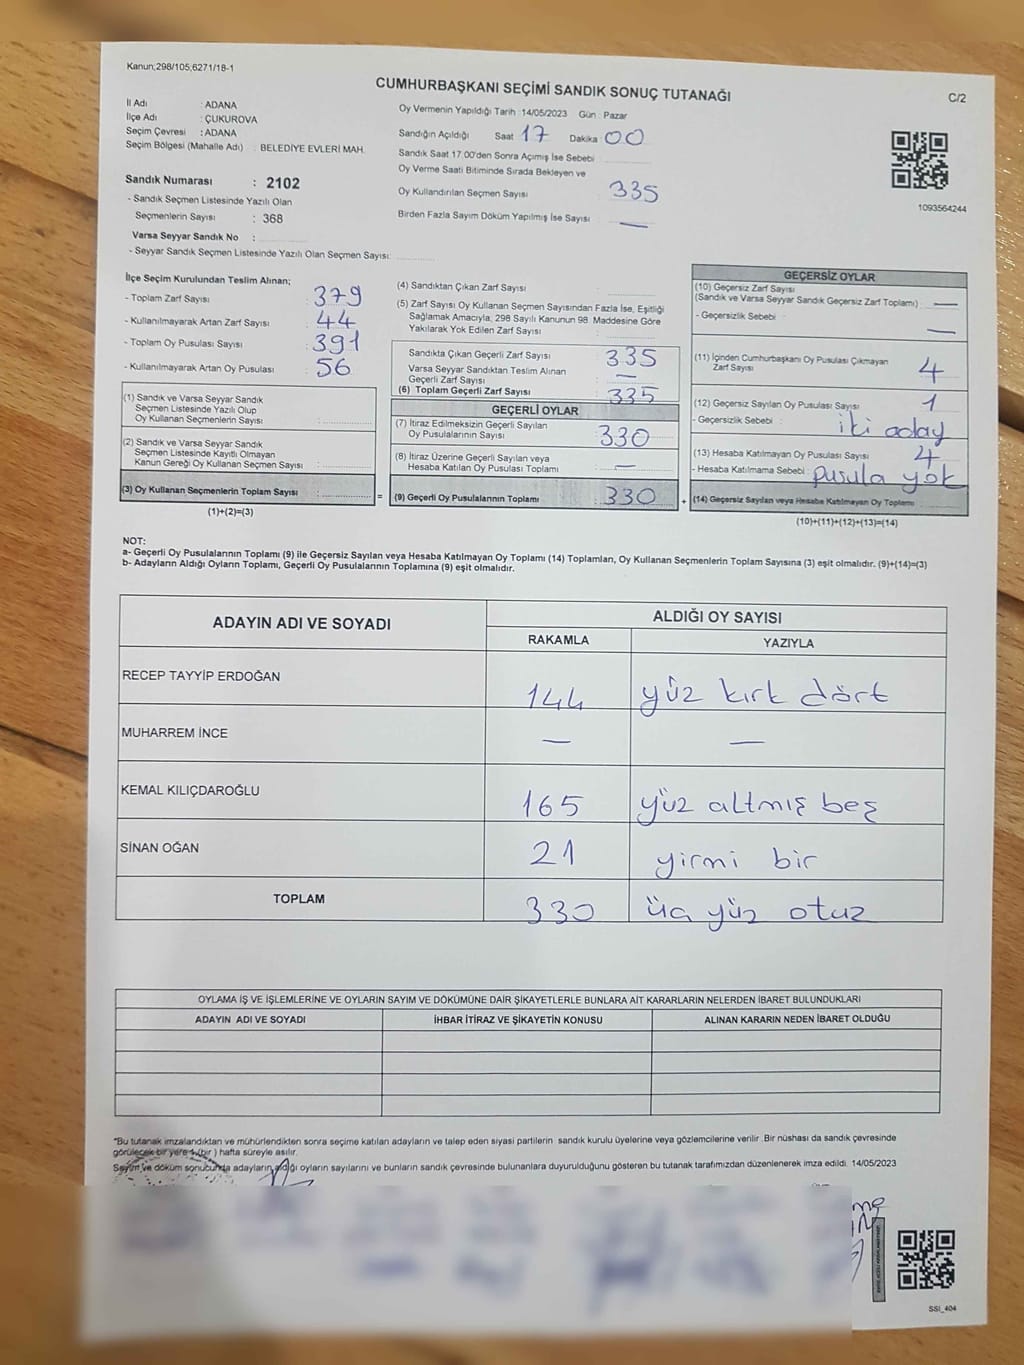 Kanun;298/105,6271/18-1
CUMHURBAŞKANI SEÇİMİ SANDIK SONUÇ TUTANAĞI
C/2
İl Adı : ADANA
İlçe Adı : ÇUKUROVA
Seçim Çevresi : ADANA
Seçim Bölgesi (Mahalle Adı) : BELEDİYE EVLERİ MAH.
Sandık Numarası : 2102
- Sandık Seçmen Listesinde Yazılı Olan
Seçmenlerin Sayısı : 368
Varsa Seyyar Sandık No :
- Seyyar Sandık Seçmen Listesinde Yazılı Olan Seçmen Sayısı:
Oy Vermenin Yapıldığı Tarih :14/05/2023 Gün : Pazar
Sandığın Açıldığı Saat 17 Dakika 00
Sandık Saat 17:00'den Sonra Açımış İse Sebebi
Oy Verme Saati Bitiminde Sırada Bekleyen ve
Oy Kullandırılan Seçmen Sayısı 335
Birden Fazla Sayım Döküm Yapılmış İse Sayısı —
1093564244
İlçe Seçim Kurulundan Teslim Alınan;
- Toplam Zarf Sayısı : 379
- Kullanılmayarak Artan Zarf Sayısı : 44
- Toplam Oy Pusulası Sayısı : 391
- Kullanılmayarak Artan Oy Pusulası : 56
(1) Sandık ve Varsa Seyyar Sandık
Seçmen Listesinde Yazılı Olup
Oy Kullanan Seçmenlerin Sayısı :
(2) Sandık ve Varsa Seyyar Sandık
Seçmen Listesinde Kayıtlı Olmayan
Kanun Gereği Oy Kullanan Seçmen Sayısı :
(3) Oy Kullanan Seçmenlerin Toplam Sayısı : =
(1)+(2)=(3)
(4) Sandıktan Çıkan Zarf Sayısı :
(5) Zarf Sayısı Oy Kullanan Seçmen Sayısından Fazla İse, Eşitliği
Sağlamak Amacıyla, 298 Sayılı Kanunun 98. Maddesine Göre
Yakılarak Yok Edilen Zarf Sayısı :
Sandıkta Çıkan Geçerli Zarf Sayısı : 335
Varsa Seyyar Sandıktan Teslim Alınan
Geçerli Zarf Sayısı : —
(6) Toplam Geçerli Zarf Sayısı : 335
GEÇERLİ OYLAR
(7) İtiraz Edilmeksizin Geçerli Sayılan
Oy Pusulalarının Sayısı : 330
(8) İtiraz Üzerine Geçerli Sayılan veya
Hesaba Katılan Oy Pusulası Toplamı : —
(9) Geçerli Oy Pusulalarının Toplamı : 330 +
GEÇERSİZ OYLAR
(10) Geçersiz Zarf Sayısı
(Sandık ve Varsa Seyyar Sandık Geçersiz Zarf Toplamı) : —
- Geçersizlik Sebebi : —
(11) İçinden Cumhurbaşkanı Oy Pusulası Çıkmayan
Zarf Sayısı : 4
(12) Geçersiz Sayılan Oy Pusulası Sayısı : 1
- Geçersizlik Sebebi : iki aday
(13) Hesaba Katılmayan Oy Pusulası Sayısı : 4
- Hesaba Katılmama Sebebi : pusula yok
(14) Geçersiz Sayılan veya Hesaba Katılmayan Oy Toplamı :
(10)+(11)+(12)+(13)=(14)
NOT:
a- Geçerli Oy Pusulalarının Toplamı (9) ile Geçersiz Sayılan veya Hesaba Katılmayan Oy Toplamı (14) Toplamları, Oy Kullanan Seçmenlerin Toplam Sayısına (3) eşit olmalıdır. (9)+(14)=(3)
b- Adayların Aldığı Oyların Toplamı, Geçerli Oy Pusulalarının Toplamına (9) eşit olmalıdır.
ADAYIN ADI VE SOYADI
ALDIĞI OY SAYISI
RAKAMLA YAZIYLA
RECEP TAYYİP ERDOĞAN 144 yüz kırk dört
MUHARREM İNCE — —
KEMAL KILIÇDAROĞLU 165 yüz altmış beş
SİNAN OĞAN 21 yirmi bir
TOPLAM 330 üç yüz otuz
OYLAMA İŞ VE İŞLEMLERİNE VE OYLARIN SAYIM VE DÖKÜMÜNE DAİR ŞİKAYETLERLE BUNLARA AİT KARARLARIN NELERDEN İBARET BULUNDUKLARI
ADAYIN ADI VE SOYADI İHBAR İTİRAZ VE ŞİKAYETİN KONUSU ALINAN KARARIN NEDEN İBARET OLDUĞU
*Bu tutanak imzalandıktan ve mühürlendikten sonra seçime katılan adayların ve talep eden siyasi partilerin sandık kurulu üyelerine veya gözlemcilerine verilir. Bir nüshası da sandık çevresinde
görülecek bir yere 1 (bir ) hafta süreyle asılır.
Sayım ve döküm sonucunda adayların aldığı oyların sayılarını ve bunların sandık çevresinde bulunanlara duyurulduğunu gösteren bu tutanak tarafımızdan düzenlenerek imza edildi. 14/05/2023
SSI_404